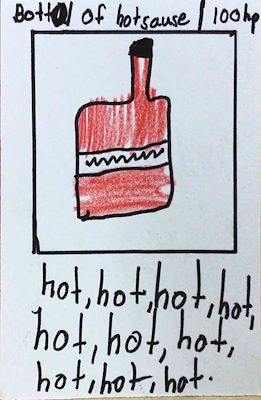 Bottl of hotsause / 100hp
hot, hot, hot, hot,
hot, hot, hot,
hot, hot, hot.